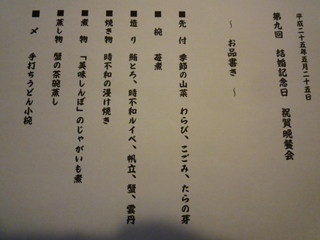 平成二十五年五月二十五日
第九回　結婚記念日　祝賀晩餐会
～　お品書き　～
■先　付　季節の山菜　わらび、こごみ、たらの芽
■椀　苺煮
■造　り　鮪とろ、時不知ルイベ、帆立、蟹、雲丹
■焼き物　時不知の漬け焼き
■煮　物　「美味しんぼ」のじゃがいも煮
■蒸し物　蟹の茶碗蒸し
■〆　手打ちうどん小椀